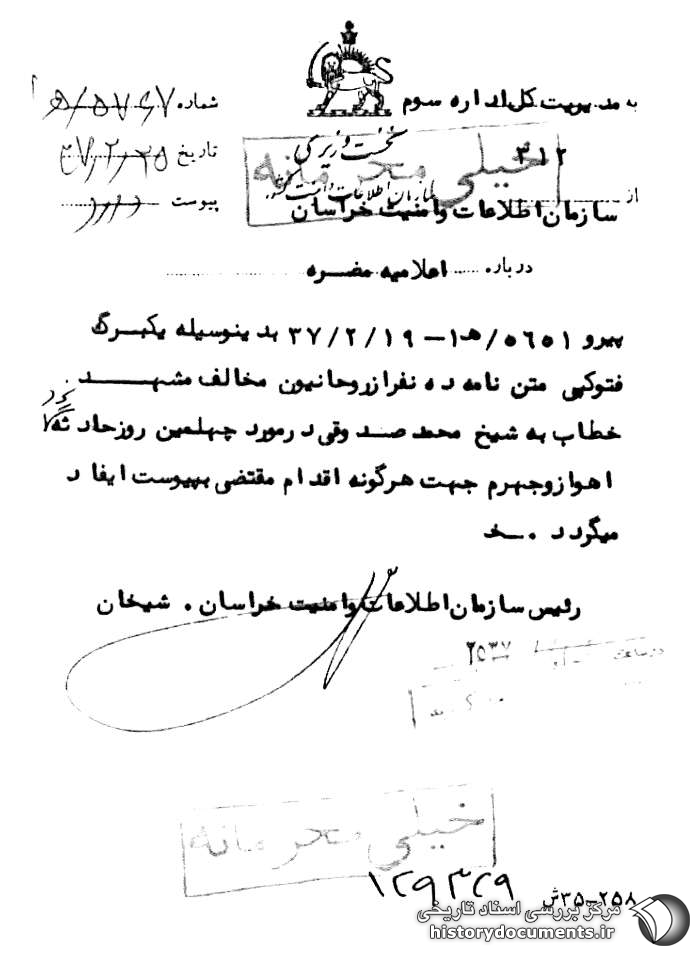 به مدیریت کل اداره سوم
۳۱۲
شماره ۵۷۶۷/ه۱
تاریخ ۳۷/۲/۲۵
پیوست دارد
نخست وزیری
سازمان اطلاعات و امنیت کشور
خیلی محرمانه
از
سازمان اطلاعات و امنیت خراسان
درباره اعلامیه مضره
پیرو ۵۶۵۱/ه۱ – ۳۷/۲/۱۹ بدینوسیله یکبرگ
فتوکپی متن نامه ده نفر از روحانیون مخالف مشهد
خطاب به شیخ محمد صدوقی در مورد چهلمین روز حادثه
اهواز و جهرم جهت هرگونه اقدام مقتضی بپیوست ایفاد
میگردد . خ
رئیس سازمان اطلاعات و امنیت خراسان . شیخان
در ساعت ۲۵۳۷
خیلی محرمانه
۱۲۹۳۲۹
۲۵۸–۳۵ش
مرکز بررسی اسناد تاریخی
historydocuments.ir